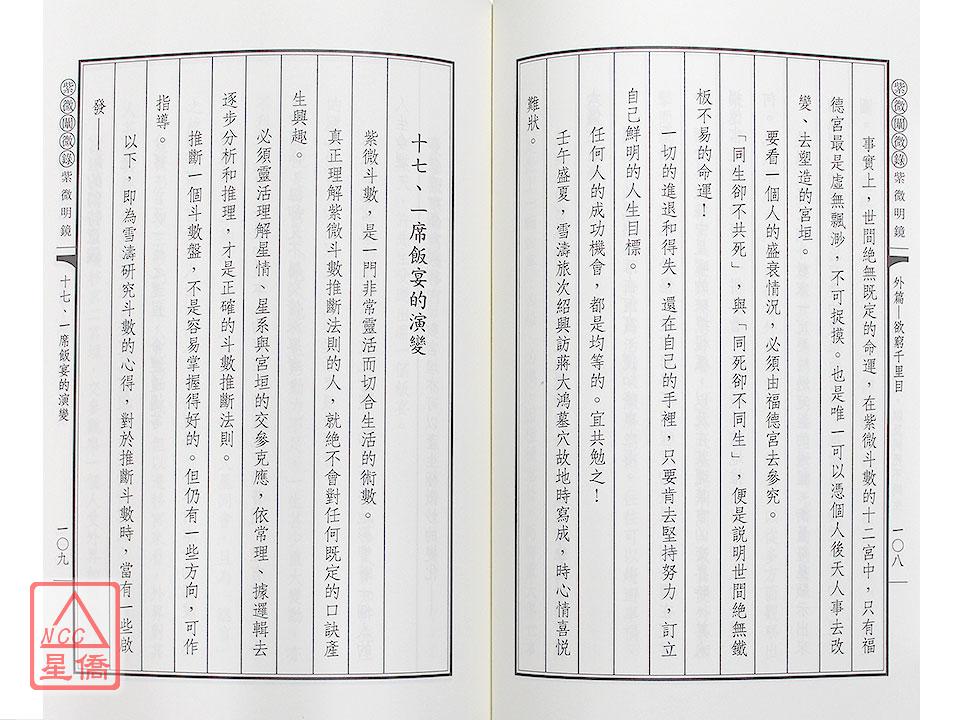 紫微闡微錄 紫微明鏡
外篇—欲窮千里目
一〇八
事實上，世間絕無既定的命運，在紫微斗數的十二宮中，只有福
德宮最是虛無飄渺，不可捉摸。也是唯一可以憑個人後天人事去改
變、去塑造的宮垣。
要看一個人的盛衰情況，必須由福德宮去參究。
「同生卻不共死」，與「同死卻不同生」，便是說明世間絕無鐵
板不易的命運！
一切的進退和得失，還在自己的手裡，只要肯去堅持努力，訂立
自己鮮明的人生目標。
任何人的成功機會，都是均等的。宜共勉之！
壬午盛夏，雪濤旅次紹興訪蔣大鴻墓穴故地時寫成，時心情喜悅
難狀。
十七、一席飯宴的演變
紫微斗數，是一門非常靈活而切合生活的術數。
真正理解紫微斗數推斷法則的人，就絕不會對任何既定的口訣產
生興趣。
必須靈活理解星情、星系與宮垣的交參克應，依常理、據邏輯去
逐步分析和推理，才是正確的斗數推斷法則。
推斷一個斗數盤，不是容易掌握得好的。但仍有一些方向，可作
指導。
以下，即為雪濤研究斗數的心得，對於推斷斗數時，當有一些啟
發——
紫微闡微錄 紫微明鏡
十七、一席飯宴的演變
一〇九
NCC
星僑